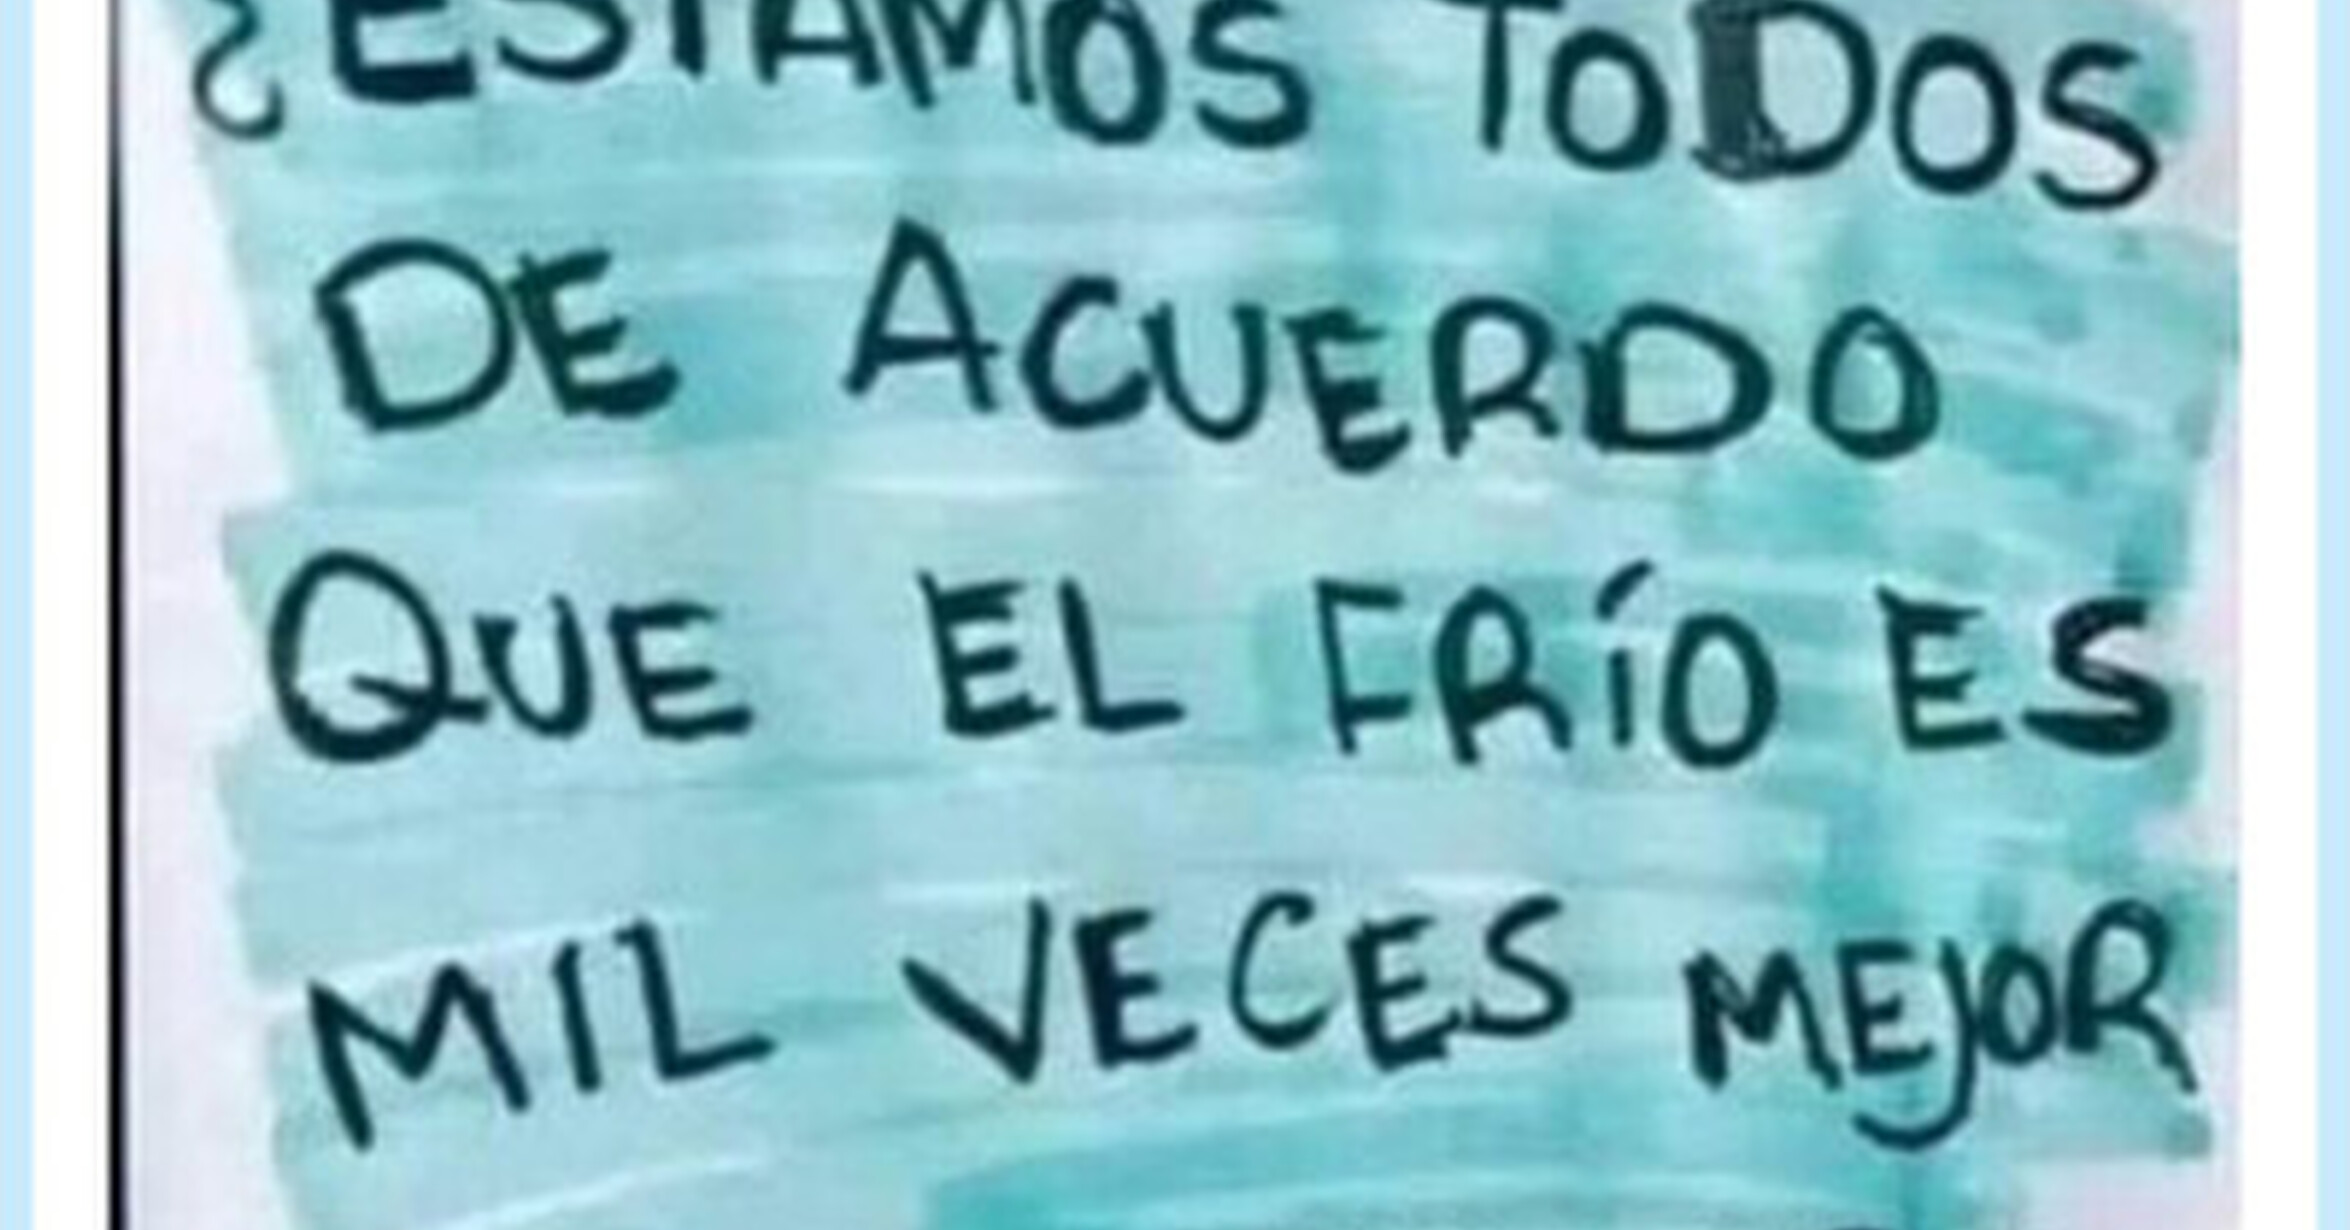 ¿ESTAMOS TODOS
DE ACUERDO
QUE EL FRÍO ES
MIL VECES MEJOR